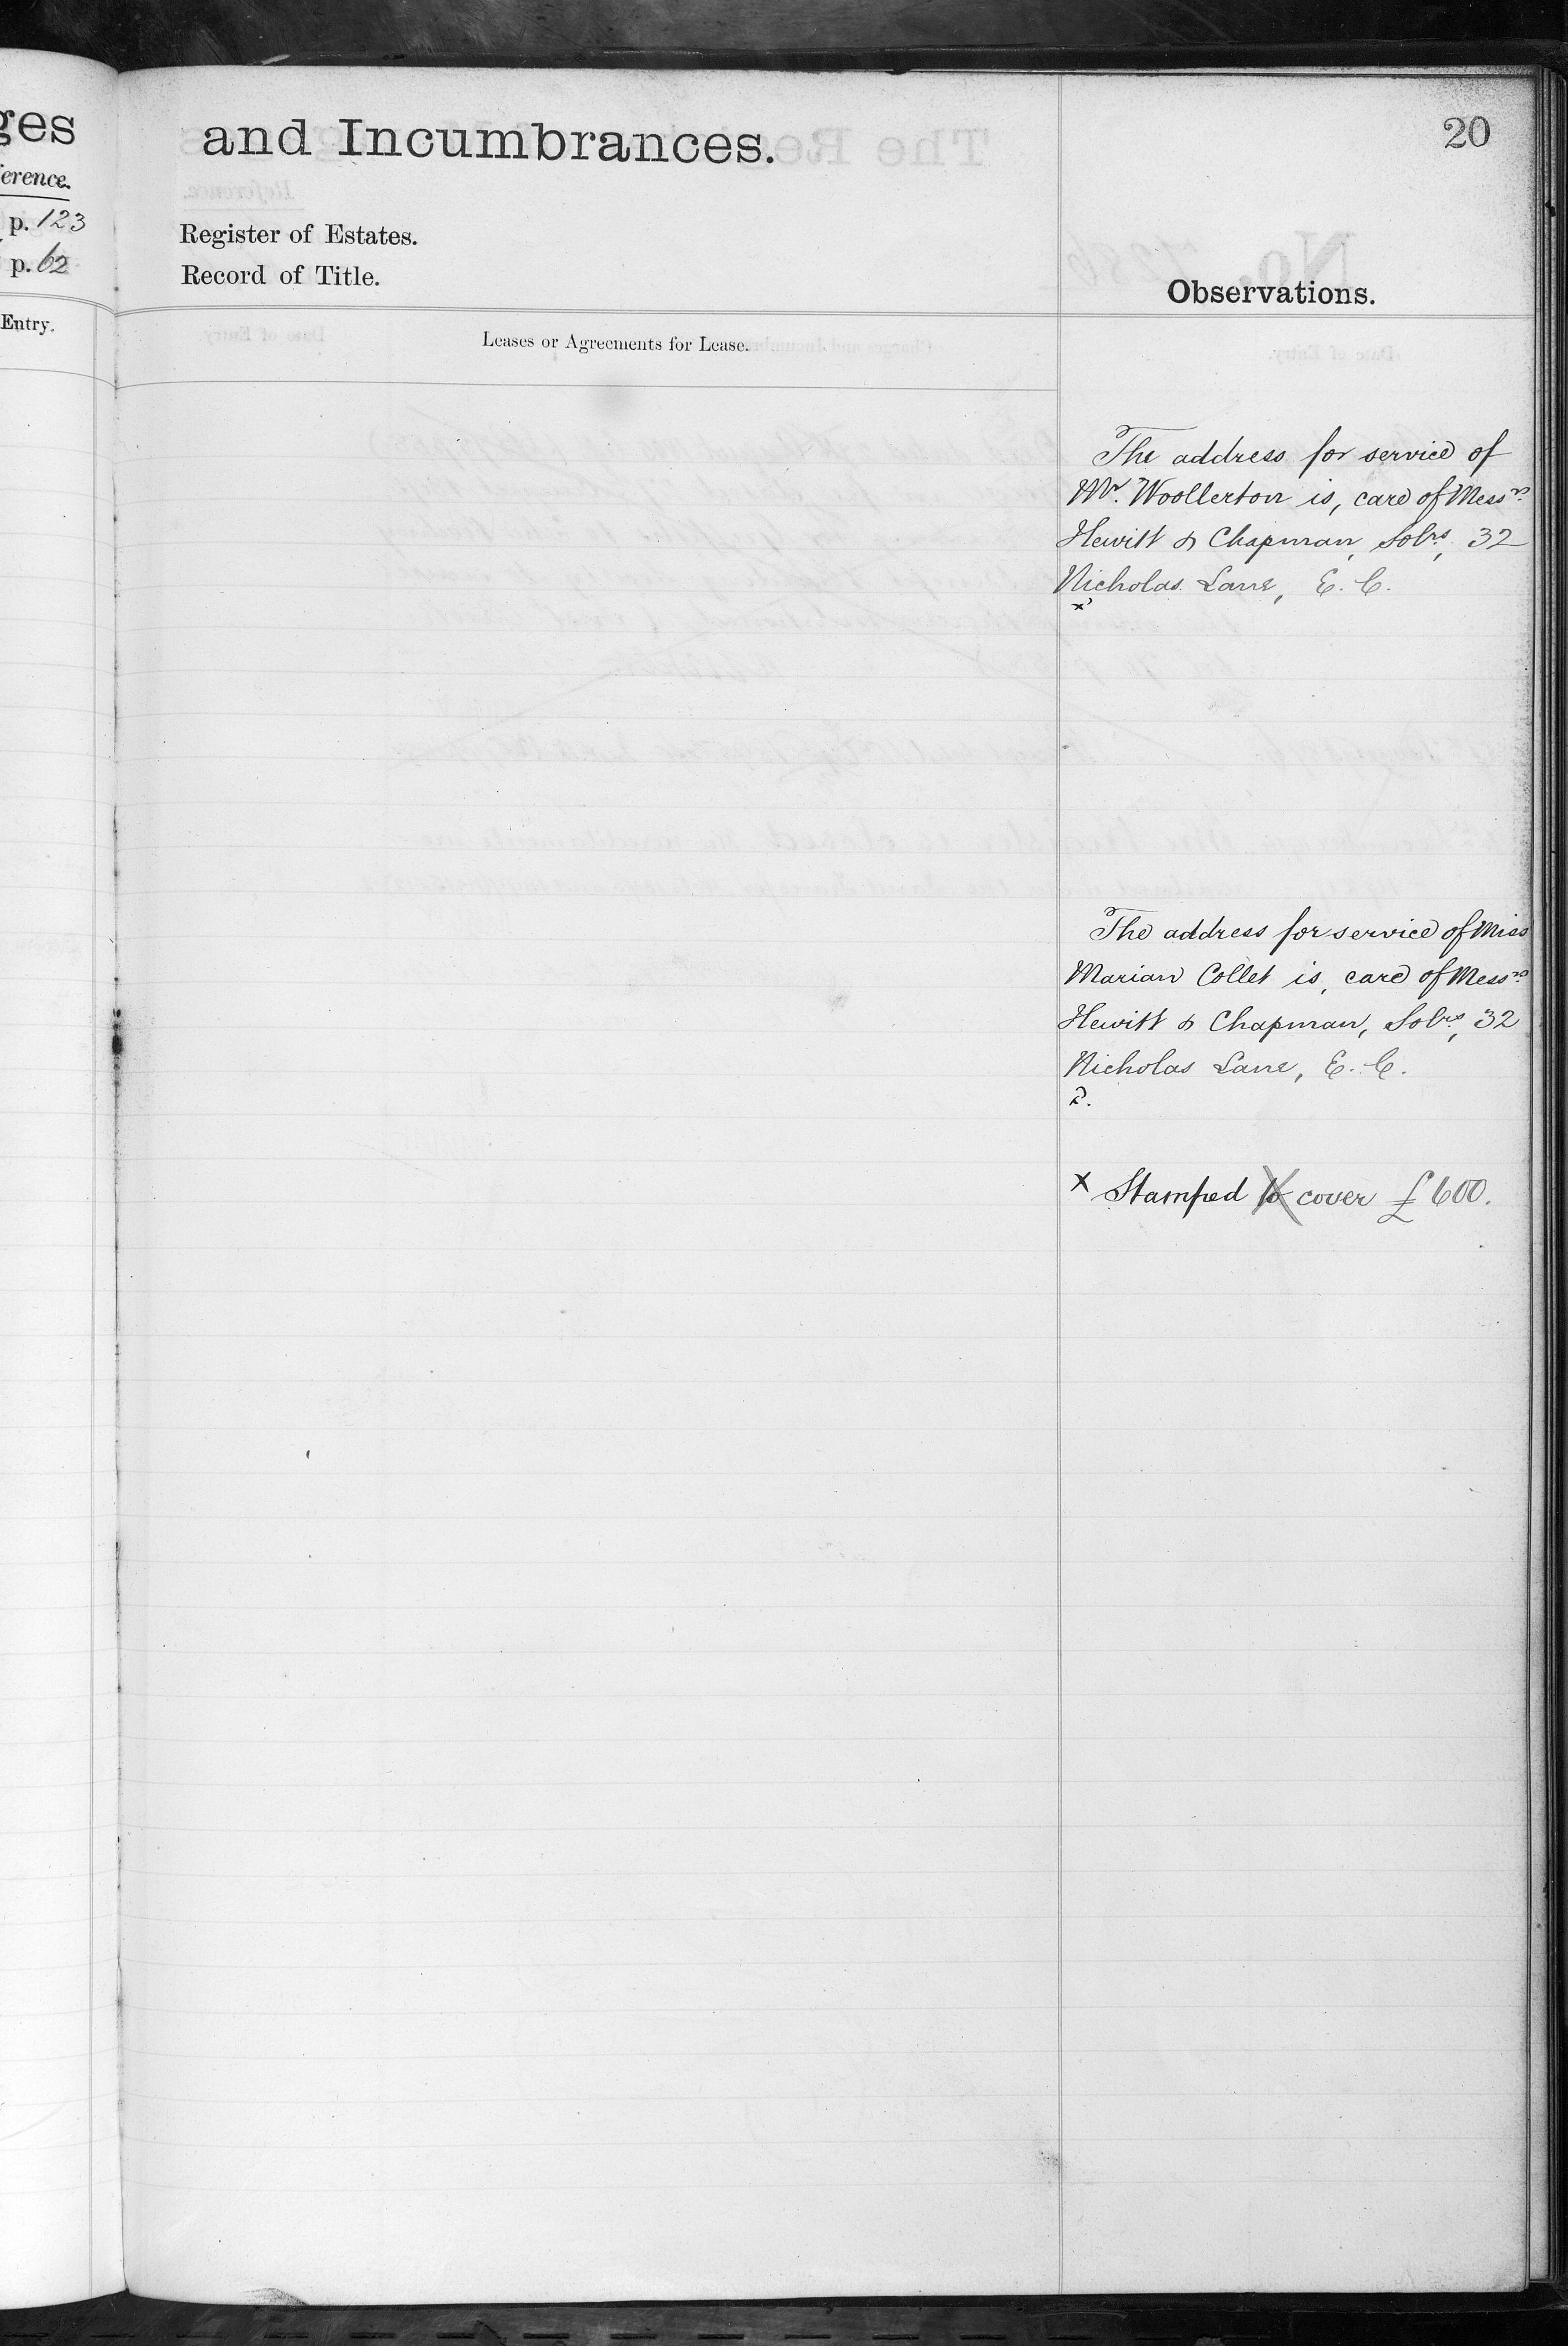 ges
erence.
p. 123
p. 62
Entry.
and Incumbrances.
20
Register of Estates.
Record of Title.
Observations.
Leases or Agreements for Lease.
The address for service of
Mr. Woollerton is, care of Messrs.
Hewitt & Chapman, Solrs, 32
Nicholas Lane, E.C.
x
The address for service of Miss
Marian Collet is, care of Messrs.
Hewitt & Chapman, Solrs, 32
Nicholas Lane, E.C.
2.
x Stamped to cover £600.